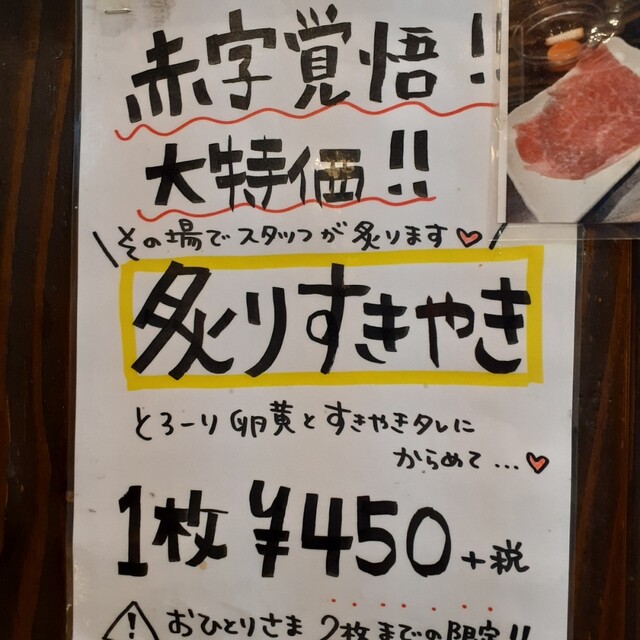 赤字覚悟!!
大特価!!
その場でスタッフが炙ります♡
炙りすきやき
とろーり卵黄とすきやきタレに
からめて...♡
1枚 ¥450+税
⚠ おひとりさま 2枚までの限定!!